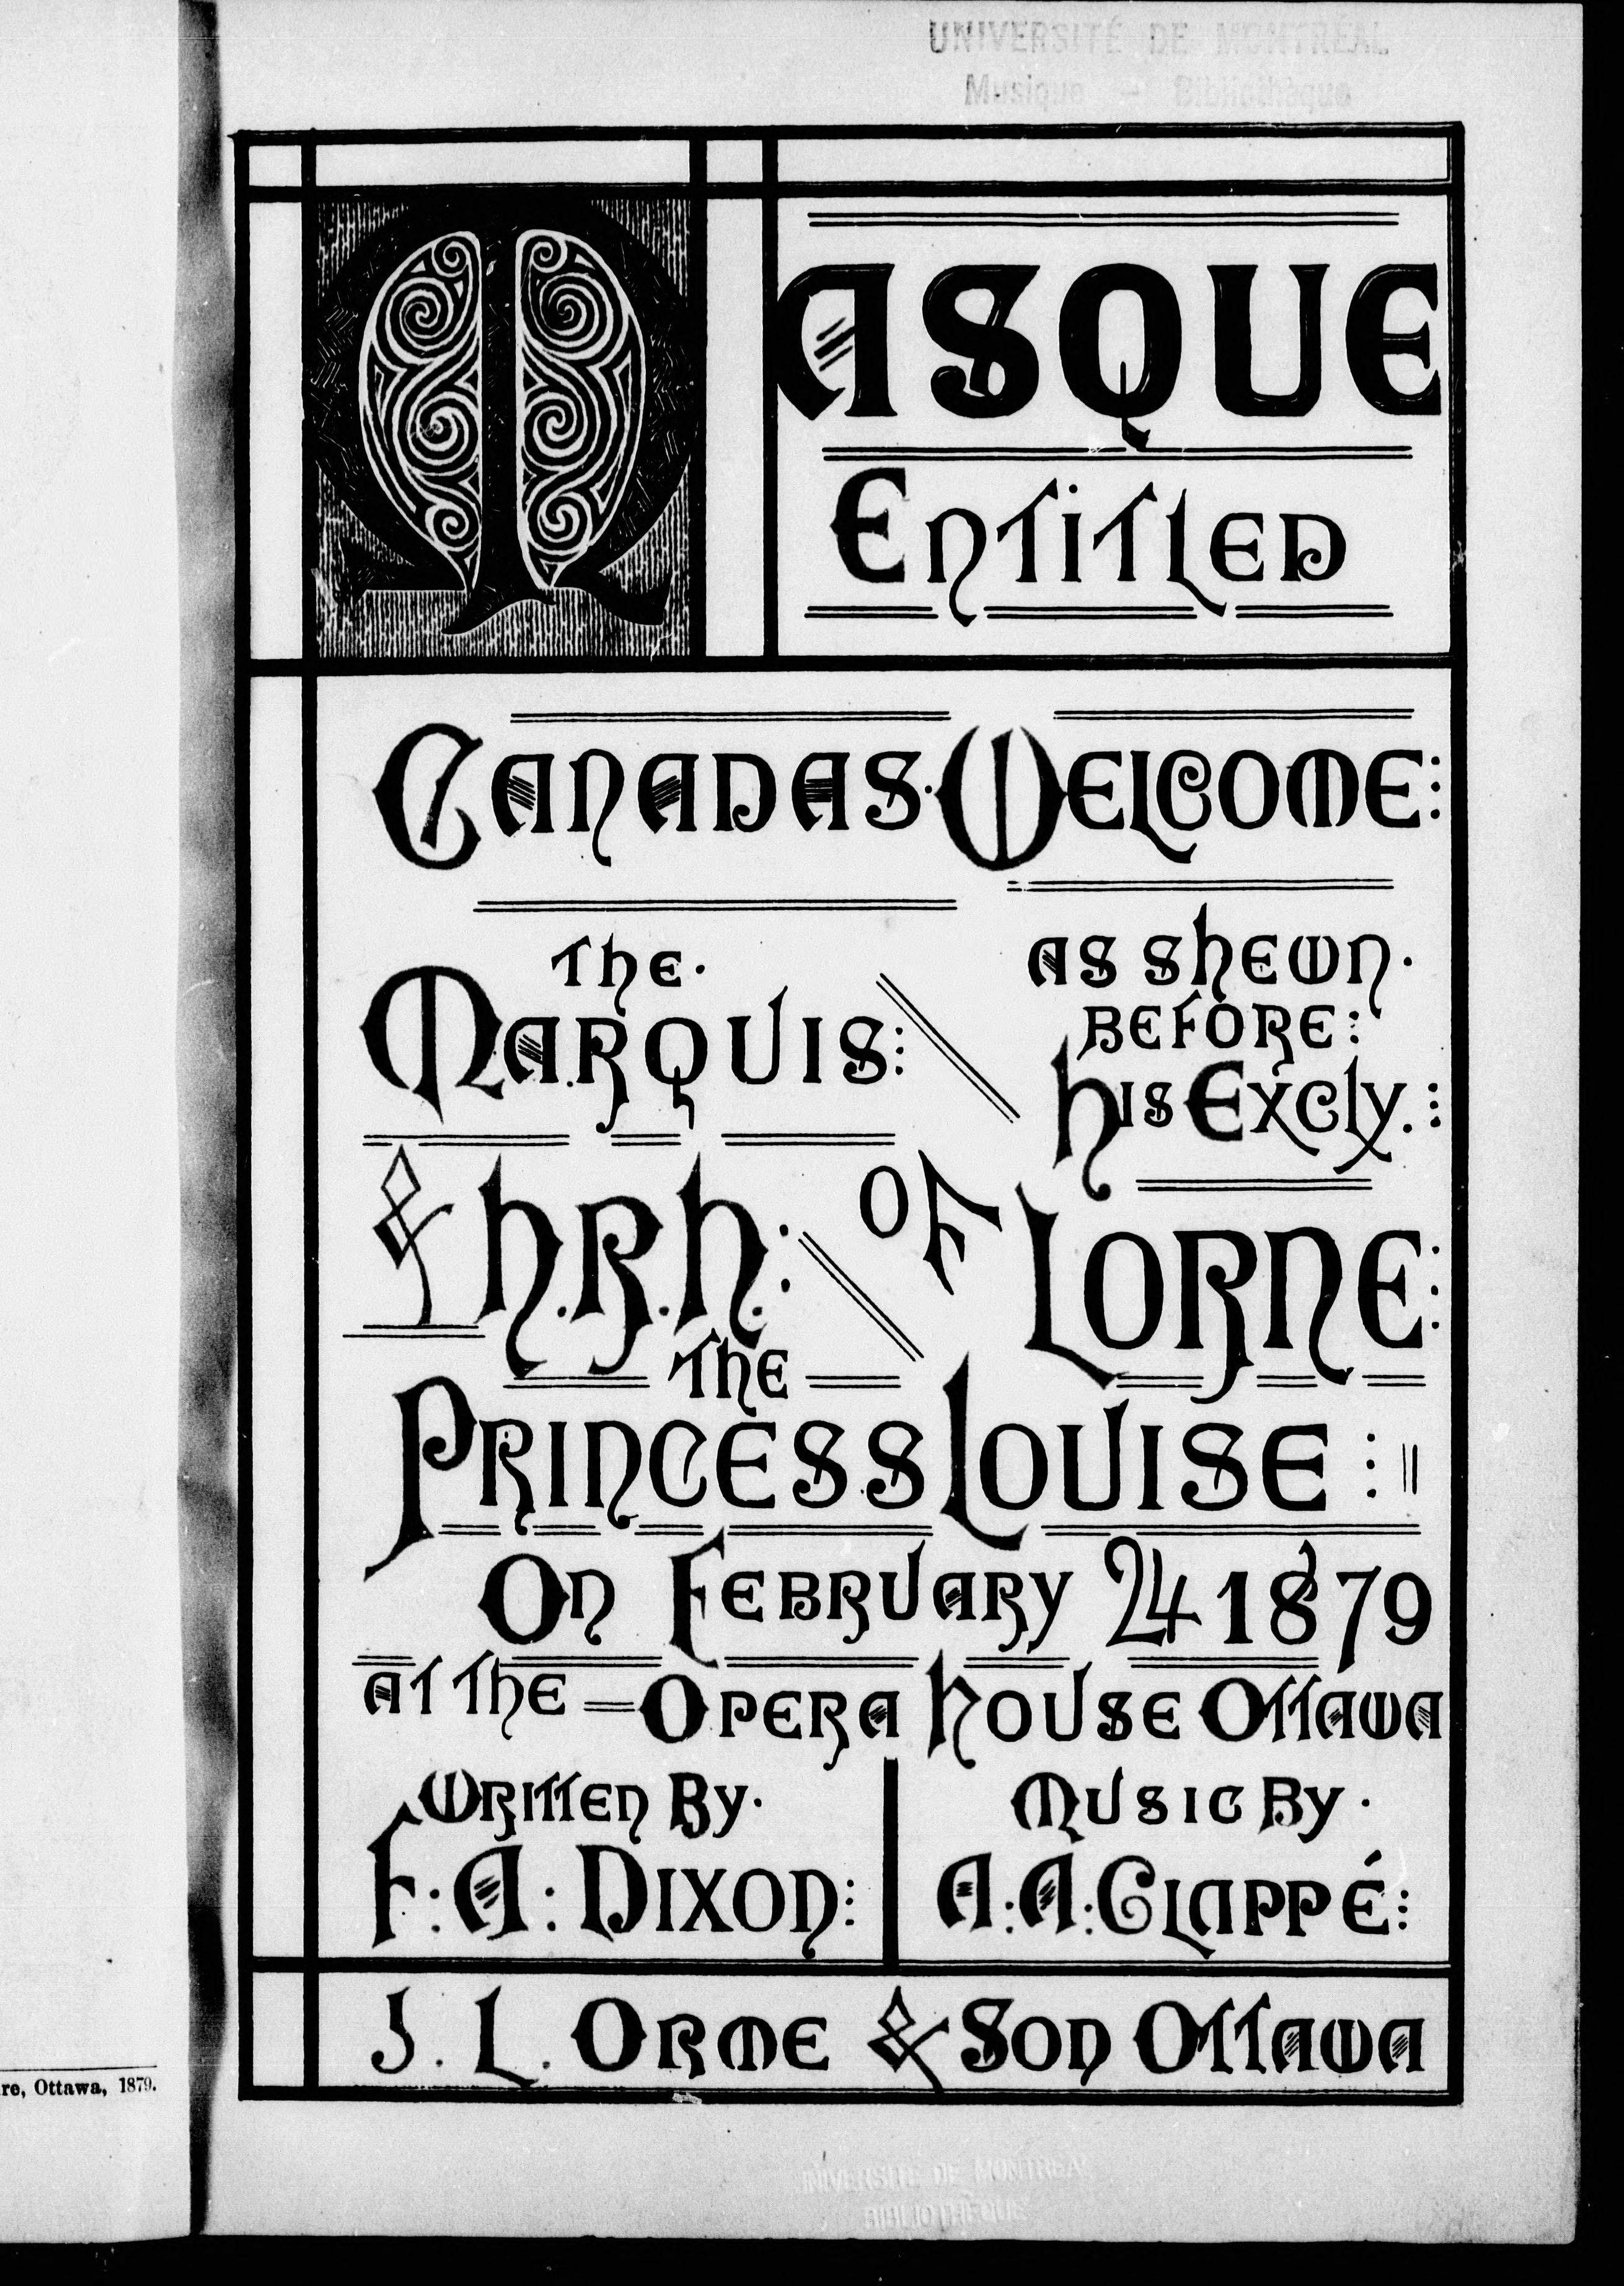 UNIVERSITÉ DE MONTRÉAL
Musique - Bibliothèque
MASQUE
ENTITLED
CANADAS · WELCOME:
AS SHEWN ·
BEFORE:
HIS EXCLY.:
THE ·
MARQUIS:
OF LORNE:
& H.R.H.:
THE
PRINCESS LOUISE :
ON FEBRUARY 24 1879
AT THE = OPERA HOUSE OTTAWA
WRITTEN BY ·
F: A: DIXON:
MUSIC BY ·
A: A: CLAPPÉ:
J. L. ORME & SON OTTAWA
re, Ottawa, 1879.
UNIVERSITÉ DE MONTRÉAL
BIBLIOTHÈQUE